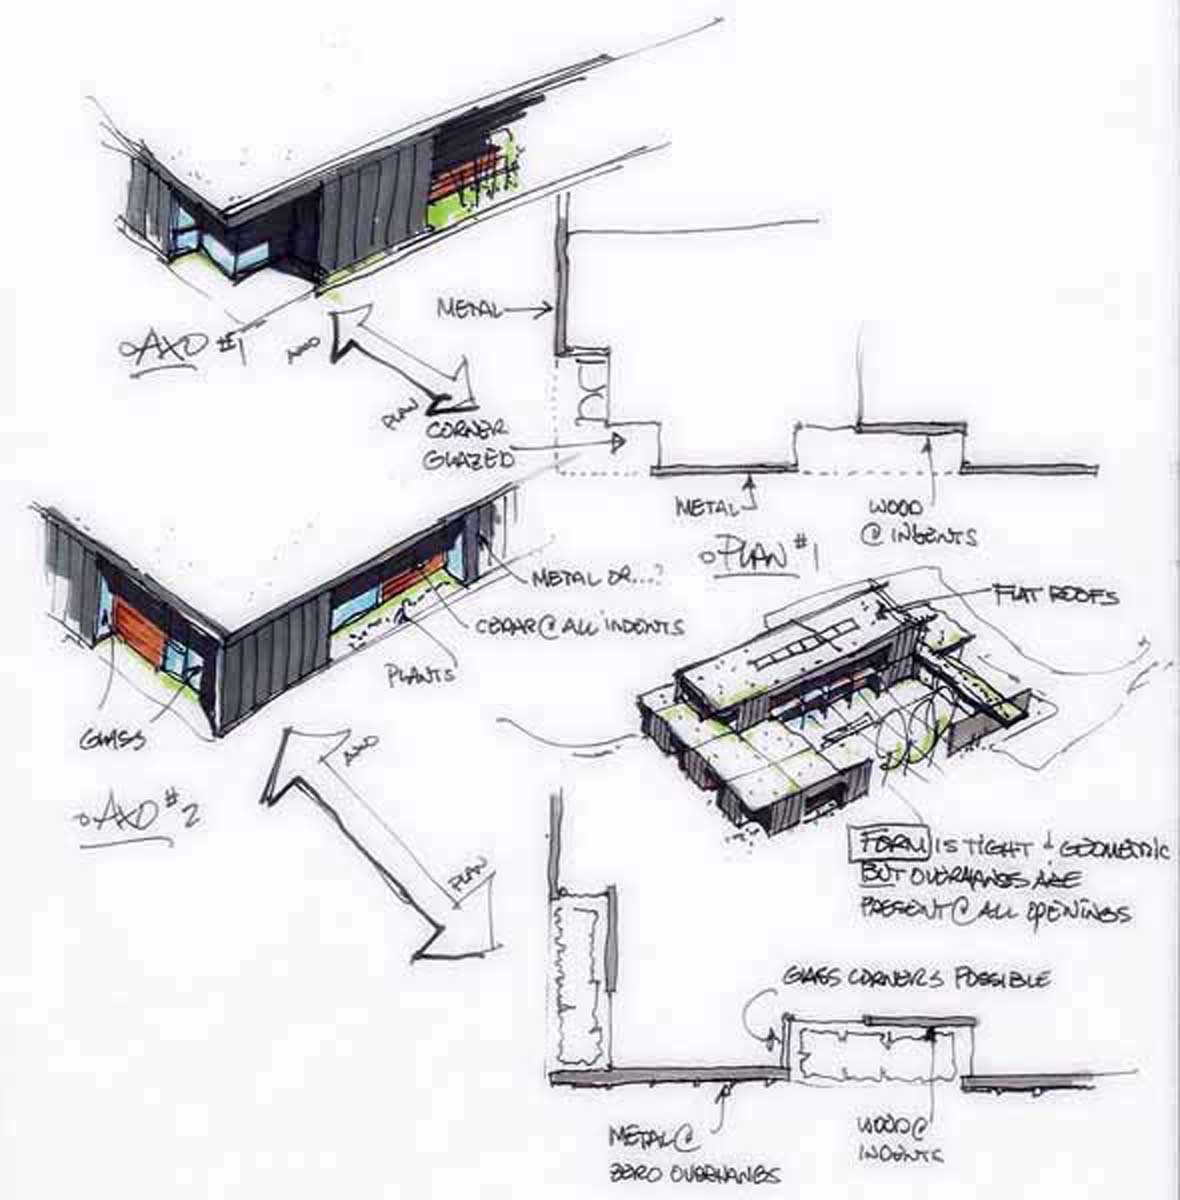 METAL
AXO #1
AXO
PLAN
CORNER
GLAZED
METAL
WOOD
@ INDENTS
PLAN #1
METAL OR...?
CEDAR @ ALL INDENTS
PLANTS
GLASS
FLAT ROOFS
AXO #2
AXO
PLAN
FORM IS TIGHT & GEOMETRIC
BUT OVERHANGS ARE
PRESENT @ ALL OPENINGS
GLASS CORNERS POSSIBLE
METAL @
ZERO OVERHANGS
WOOD @
INDENTS